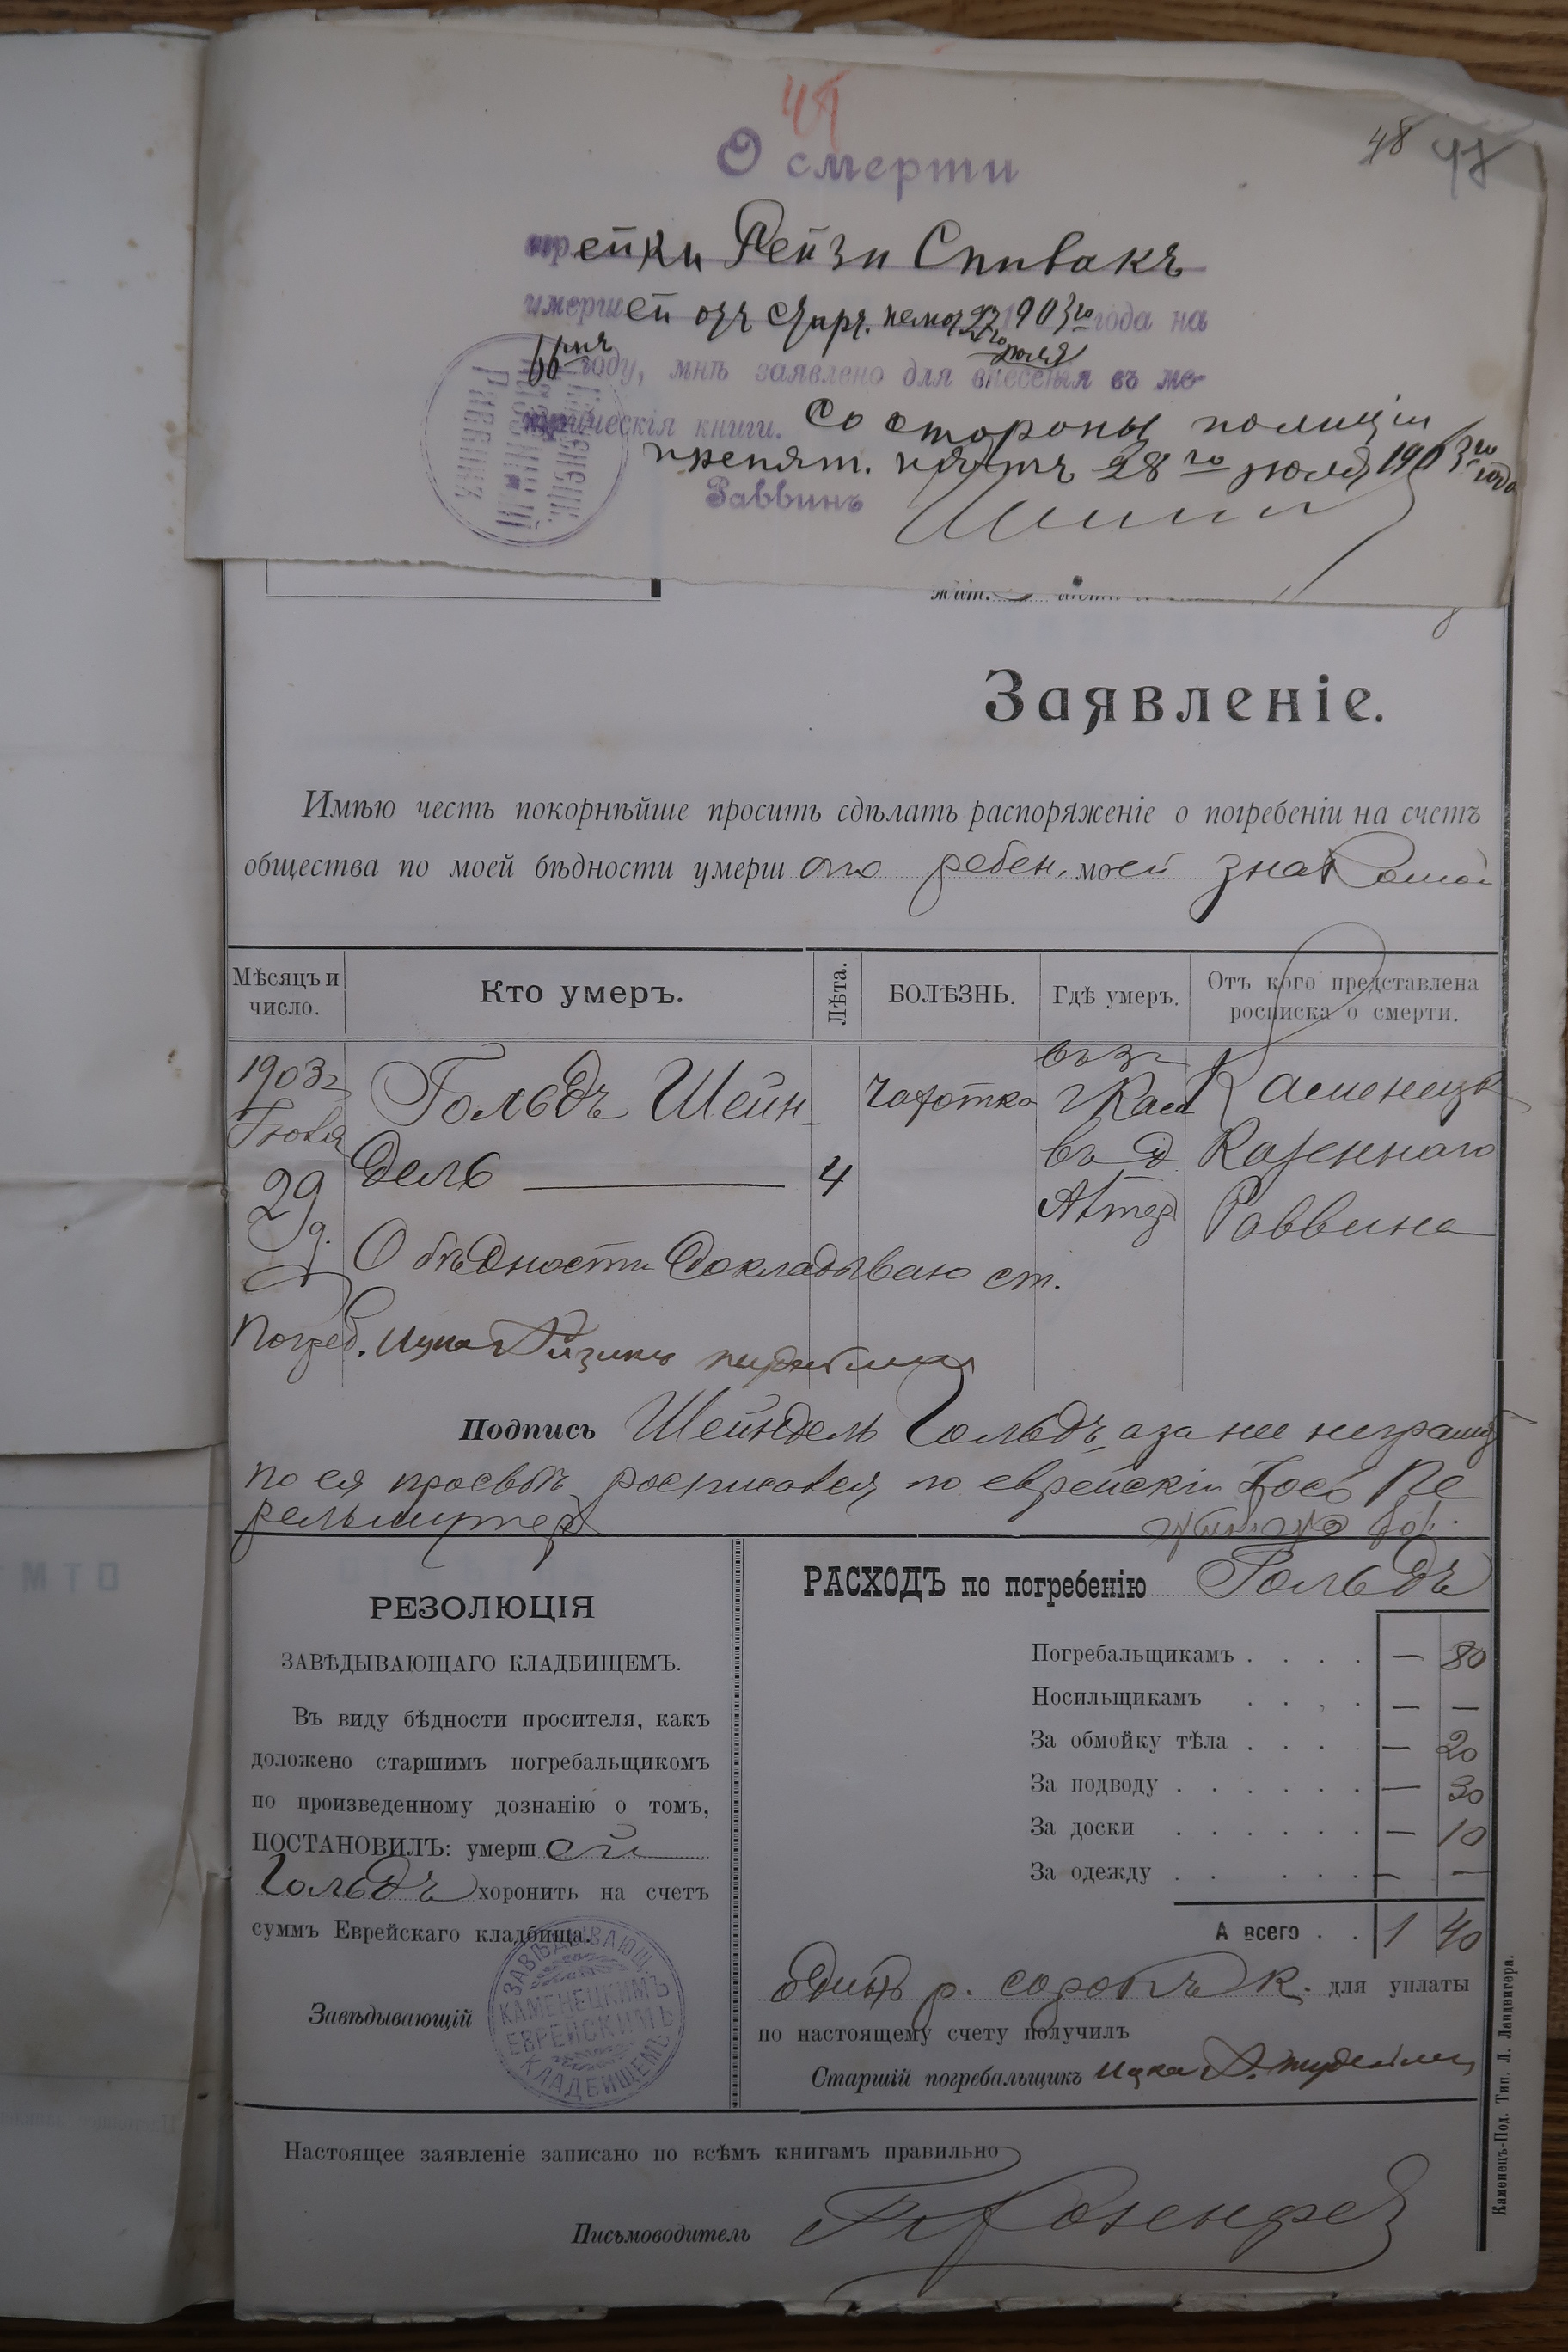 48 48
О смерти
еврейки Рейзи Спивакъ
умершей отъ 27 1903го года на
66мъ году, мнѣ заявлено для внесенія въ ме-
іюля
трическія книги. Со стороны полиціи
препят. нѣтъ 28го іюля 1903го года
Раввинъ
Заявленіе.
Имѣю честь покорнѣйше просить сдѣлать распоряженіе о погребеніи на счетъ
общества по моей бѣдности умершаго ребен. моей знакомой
Мѣсяцъ и число.
Кто умеръ.
Лѣта.
БОЛѢЗНЬ.
Гдѣ умеръ.
Отъ кого представлена росписка о смерти.
1903г Гольдъ Шейн- чахотка въ г Каменецк
Іюля дель 4 Кам Казеннаго
29 въ д Раввина
О бѣдности докладываю ст.
Погреб. Ицка
Подпись Шейндель Гольдъ, а за нее неграмот
по ея просьбѣ росписался по еврейски Іосъ Пе
рельмутеръ
РЕЗОЛЮЦІЯ
ЗАВѢДЫВАЮЩАГО КЛАДБИЩЕМЪ.
Въ виду бѣдности просителя, какъ
доложено старшимъ погребальщикомъ
по произведенному дознанію о томъ,
ПОСТАНОВИЛЪ: умершей
Гольдъ хоронить на счетъ
суммъ Еврейскаго кладбища.
Завѣдывающій
ЗАВѢДЫВАЮЩ.
КАМЕНЕЦКИМЪ
ЕВРЕЙСКИМЪ
КЛАДБИЩЕМЪ
РАСХОДЪ по погребенію Гольдъ
Погребальщикамъ . . . . — 80
Носильщикамъ . . . . — —
За обмойку тѣла . . . . — 20
За подводу . . . . . . — 30
За доски . . . . . . — 10
За одежду . . . . . . — —
А всего . . 1 40
Одинъ р. сорокъ к. для уплаты
по настоящему счету получилъ
Старшій погребальщикъ Ицка
Настоящее заявленіе записано по всѣмъ книгамъ правильно
Письмоводитель
Каменецъ-Под. Тип. Л. Ландвигера.